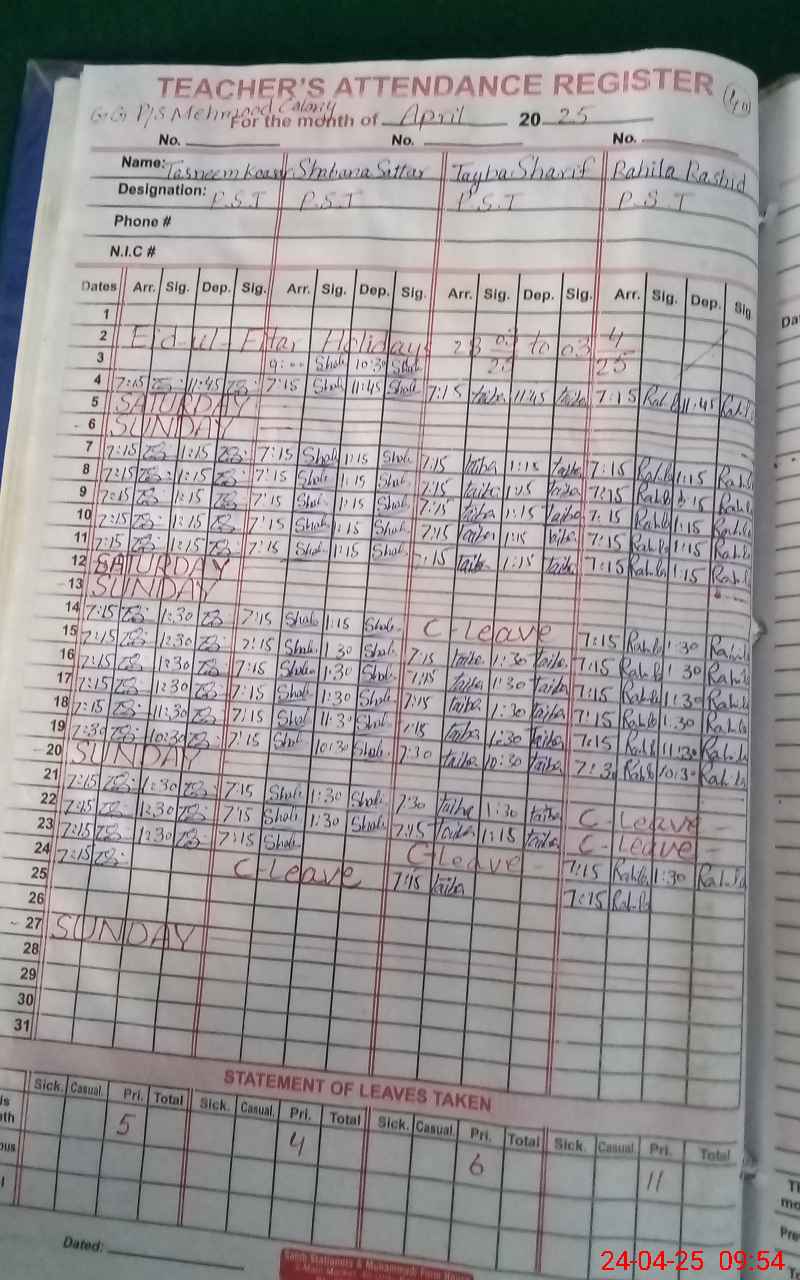 TEACHER'S ATTENDANCE REGISTER
G.G P/S Mehmood Colony
For the month of April 20 25
No. No. No.
Name: Tasneem Shahana Sattar Tayba Sharif Rahila Rashid
Designation: P.S.T P.S.T P.S.T P.S.T
Phone #
N.I.C #
Dates Arr. Sig. Dep. Sig. Arr. Sig. Dep. Sig. Arr. Sig. Dep. Sig. Arr. Sig. Dep. Sig.
1
2 Eid-ul-Fitar Holidays 28 03/25 to 03 4/25
3 9:00 Shah 10:30 Shah
4 7:15 11:45 7:15 Shah 11:45 Shah 7:15 taiba 11:45 taiba 7:15 Rahila 11:45 Rahila
5 SATURDAY
6 SUNDAY
7 7:15 1:15 7:15 Shah 1:15 Shah 7:15 taiba 1:15 taiba 7:15 Rahila 1:15 Rahila
8 7:15 1:15 7:15 Shah 1:15 Shah 7:15 taiba 1:15 taiba 7:15 Rahila 1:15 Rahila
9 7:15 1:15 7:15 Shah 1:15 Shah 7:15 taiba 1:15 taiba 7:15 Rahila 1:15 Rahila
10 7:15 1:15 7:15 Shah 1:15 Shah 7:15 taiba 1:15 taiba 7:15 Rahila 1:15 Rahila
11 7:15 1:15 7:15 Shah 1:15 Shah 7:15 taiba 1:15 taiba 7:15 Rahila 1:15 Rahila
12 SATURDAY
13 SUNDAY
14 7:15 1:30 7:15 Shah 1:15 Shah C-Leave 7:15 Rahila 1:30 Rahila
15 7:15 1:30 7:15 Shah 1:30 Shah 7:15 taiba 1:30 taiba 7:15 Rahila 1:30 Rahila
16 7:15 1:30 7:15 Shah 1:30 Shah 7:15 taiba 1:30 taiba 7:15 Rahila 1:30 Rahila
17 7:15 1:30 7:15 Shah 1:30 Shah 7:15 taiba 1:30 taiba 7:15 Rahila 1:30 Rahila
18 7:15 11:30 7:15 Shah 11:30 Shah 7:15 taiba 11:30 taiba 7:15 Rahila 11:30 Rahila
19 7:30 10:30 7:15 Shah 10:30 Shah 7:30 taiba 10:30 taiba 7:30 Rahila 10:30 Rahila
20 SUNDAY
21 7:15 1:30 7:15 Shah 1:30 Shah 7:30 taiba 1:30 taiba C-Leave
22 7:15 1:30 7:15 Shah 1:30 Shah 7:15 taiba 1:15 taiba C-Leave
23 7:15 1:30 7:15 Shah C-Leave 7:15 Rahila 1:30 Rahila
24 7:15 C-Leave 7:15 taiba 7:15 Rahila
25
26
27 SUNDAY
28
29
30
31
STATEMENT OF LEAVES TAKEN
Sick. Casual. Pri. Total Sick. Casual. Pri. Total Sick. Casual. Pri. Total Sick. Casual. Pri. Total
5 4 6 11
Dated:
24-04-25 09:54